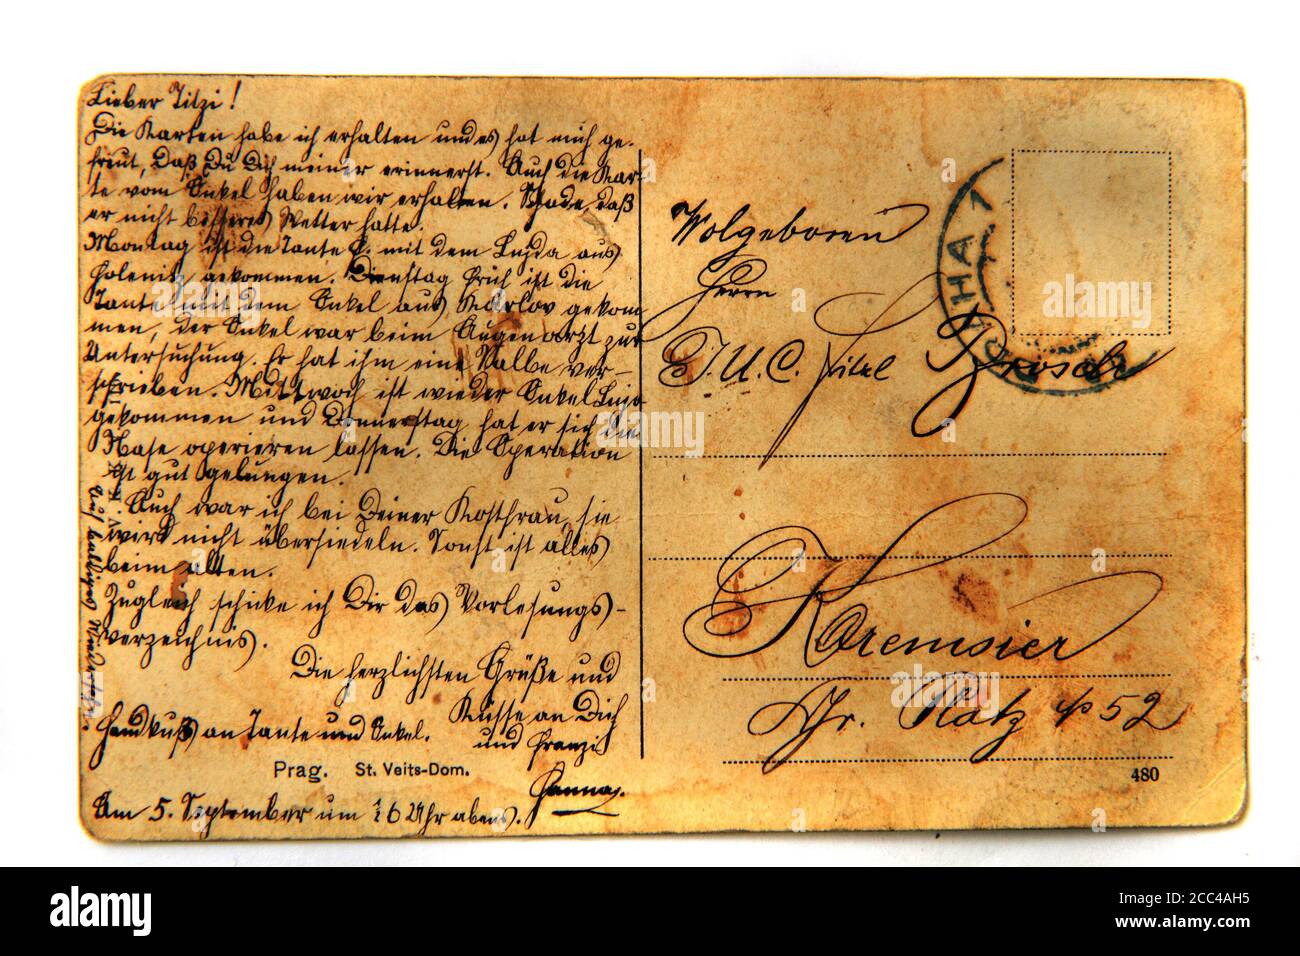 Lieber Titzi!
Die Karten habe ich erhalten und es hat mich ge-
freut, daß Du Dich meiner erinnerst. Auch die Kar-
te vom Onkel haben wir erhalten. Schade, daß
er nicht besseres Wetter hatte.
Montag ist die Tante E. mit dem Lujda aus
Holenitz gekommen. Dienstag früh ist die
Tante mit dem Onkel aus Karlov gekom
men, der Onkel war beim Augenarzt zur
Untersuchung. Er hat ihm eine Salbe ver-
schrieben. Mittwoch ist wieder Onkel Lujo
gekommen und Donnerstag hat er sich die
Nase operieren lassen. Die Operation
ist gut gelungen.
Auch war ich bei Deiner Kostfrau, sie
wird nicht übersiedeln. Sonst ist alles
beim alten.
Zugleich schicke ich Dir das Vorlesungs-
verzeichnis.
Die herzlichsten Grüße und
Küsse an Dich
und Franzi
Hanna.
Handkuß an Tante und Onkel.
Auf baldiges Wiedersehen
Prag. St. Veits-Dom.
Am 5. September um 1/2 6 Uhr abens.
PRAHA 1
Wolgeboren
Herrn
J.U.C. Brosch
Kremsier
Gr. Platz № 52
480
alamy
Image ID: 2CC4AH5
www.alamy.com